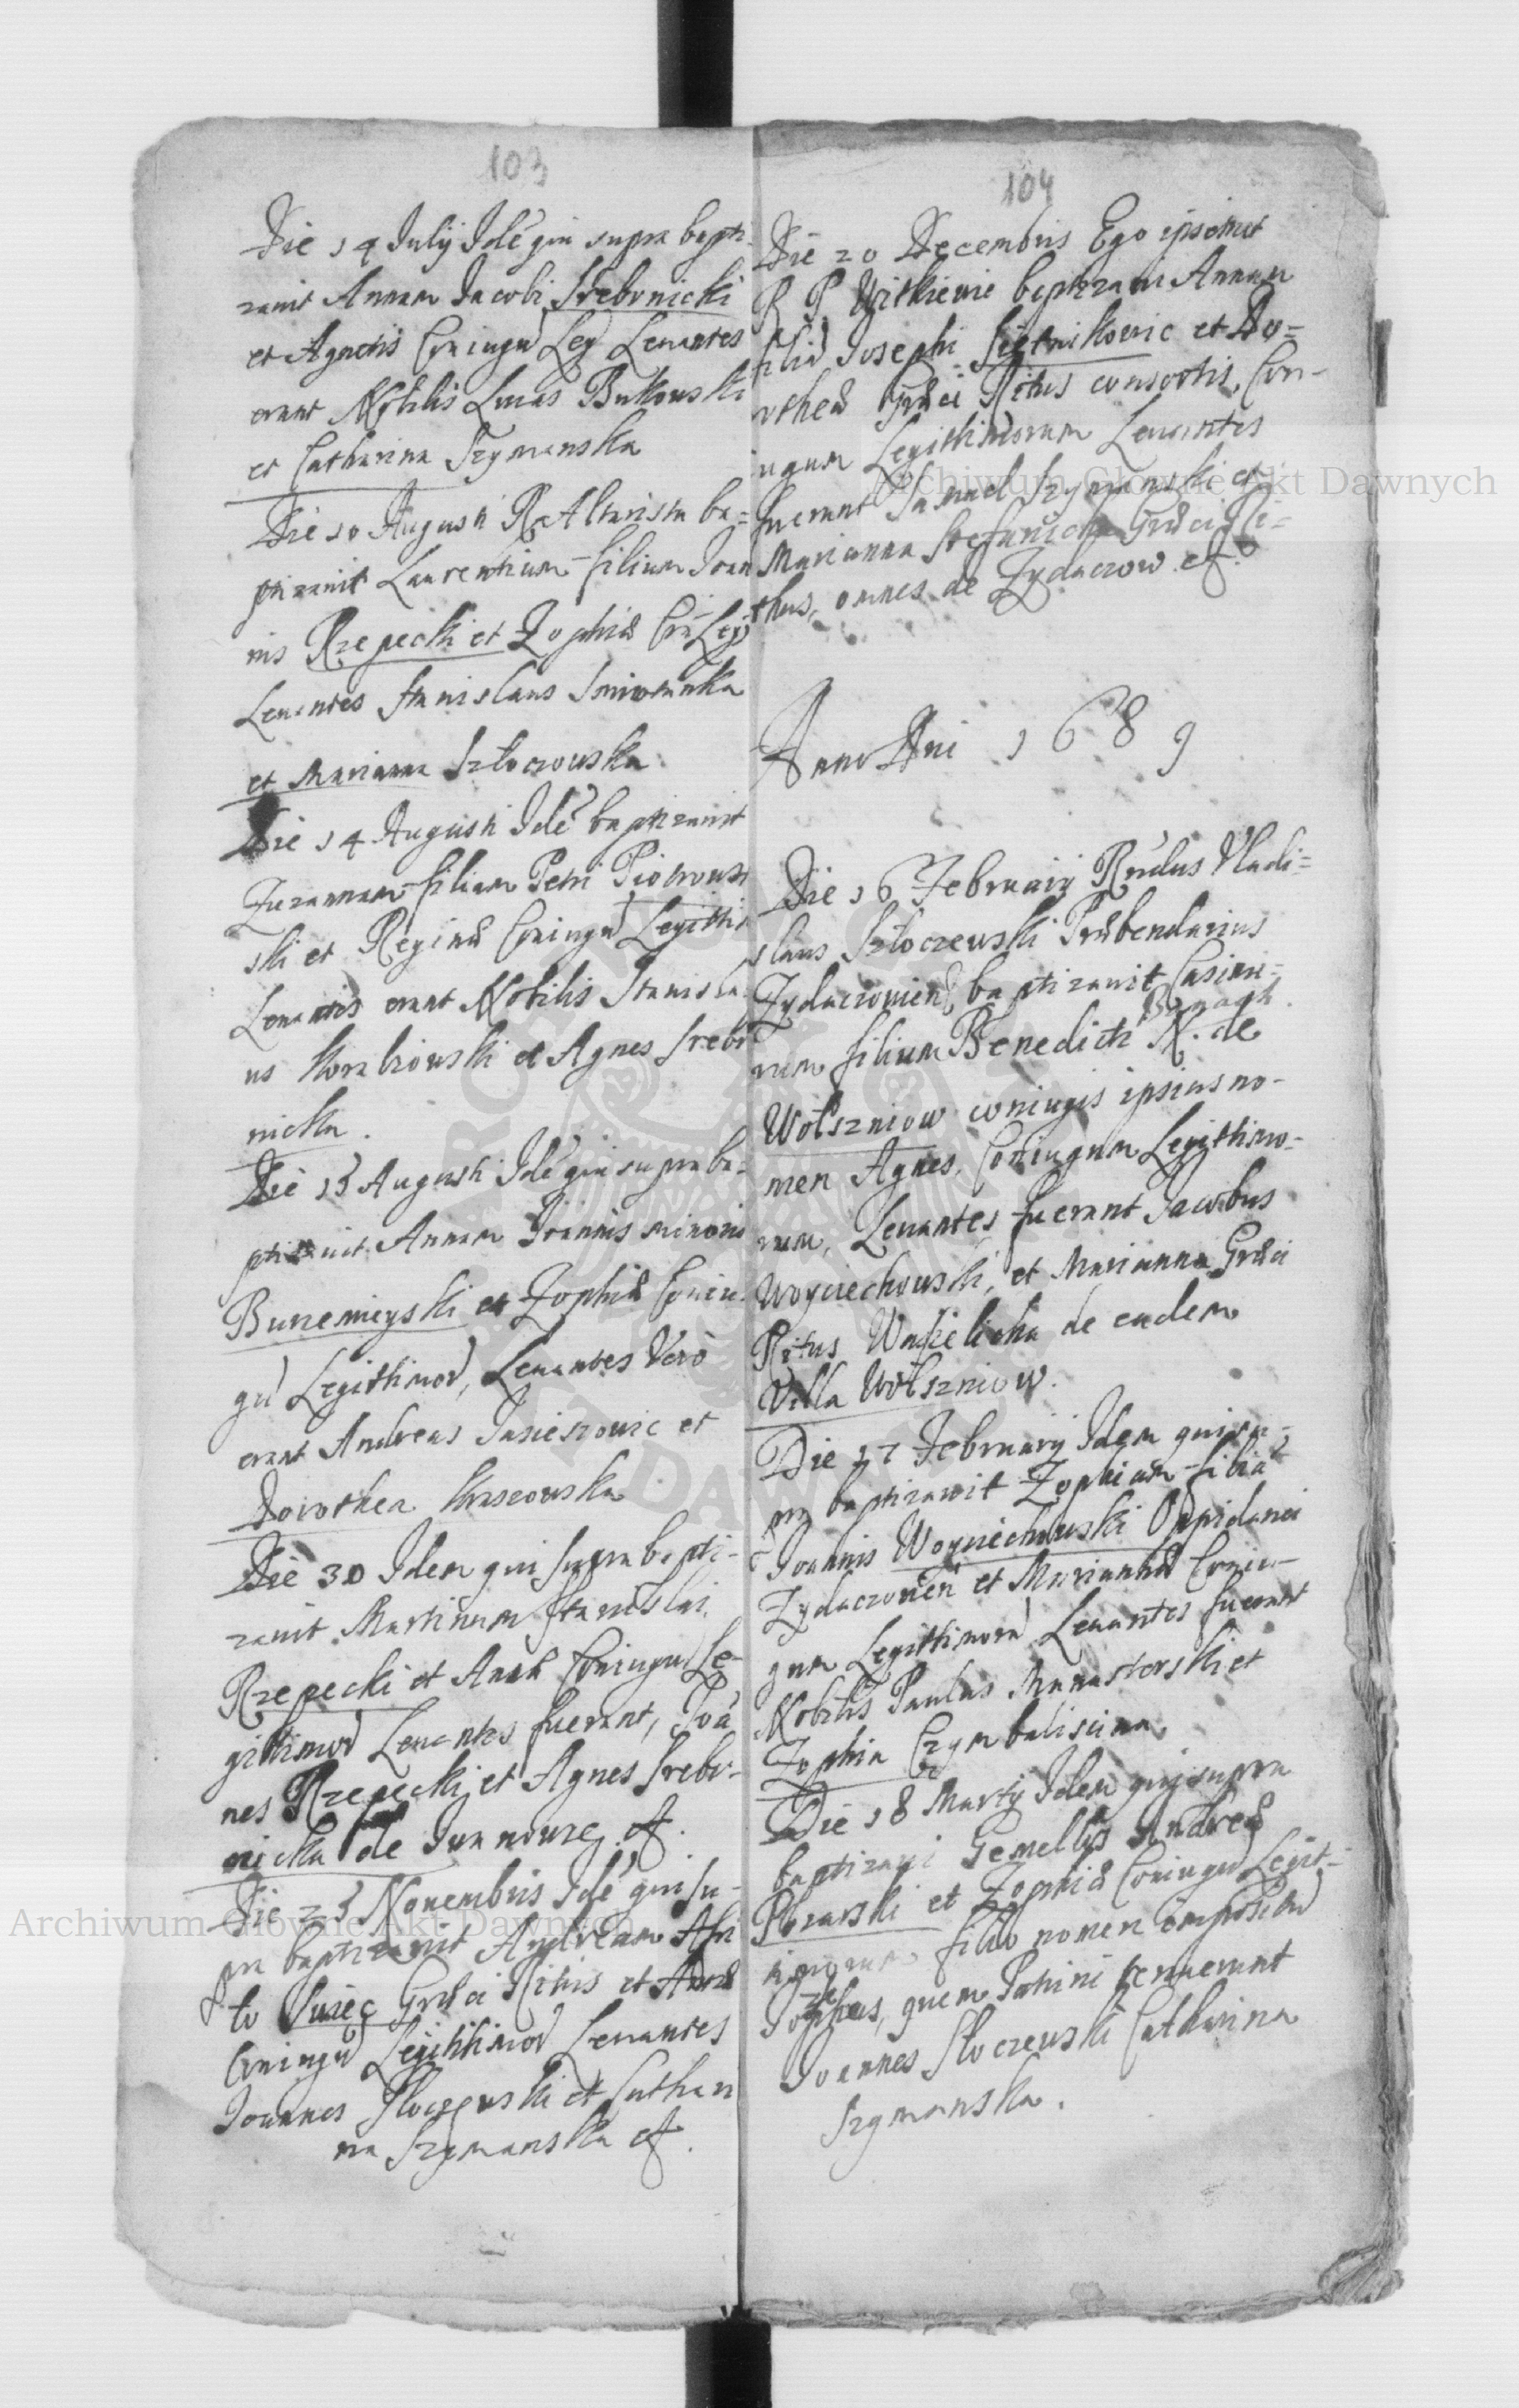 103
Die 14 Julij Idē qui supra bapti-
zavit Annam Jacobi Srebrnicki
et Agnetis Coniugū Leg Levantes
erant Nobilis Lucas Bukowski
et Catharina Szymanska
Die 10 Augusti R Altarista ba=
ptizavit Laurentium filium Joan
nis Rzepecki et Zophiæ Con Leg
Levantes Stanislaus
et Marianna Szłoczowska
Die 14 Augusti Idē baptizavit
Zuzannam filiam Petri Piotrows
ski et Reginæ Coniugū Legitti
Levantes erant Nobilis Stanisla
us et Agnes Srebr
nicka.
Die 15 Augusti Idē qui supra ba-
ptizavit Annam Joannis minoris
et Zophiæ Coniu
gū Legithimorū, Levantes Vero
erant Andreas et
Dorothea
Die 30 Idem qui supra bapti-
zavit Martinum Stanislai
Rzepecki et Annæ Coniugū Le-
githimorū Levantes fuerant, Joā
nes Rzepecki et Agnes Srebr-
nicka de
Die 25 Novembris Idē qui su-
pra baptizavit Andream
to Græci Ritus et Annæ
Coniugū Legithimorū Levantes
Joannes et Cathari
na Szymanska
104
Die 20 Decembris Ego ipsemet
R P Witkiewic baptizavi Annam
filiā Josephi et Do=
rotheæ Græci Ritus consortis, Con-
iugum Legithimorum Levantes
fuerant Samuel Szymanski et
Marianna Græci Ri=
thus, omnes de Zydaczow
Anno Dni 1689
Die 16 Februarij Rndus Vladi=
slaus Szłoczewski Præbendarius
Zydaczovien, baptizavit Casimi=
rum filium Benedicti N. de
Wołszniow coniugis ipsius no-
men Agnes, Coniugum Legithimo-
rum, Levantes fuerant Jacobus
Woyciechowski, et Marianna Græci
Ritus de eadem
Villa Wołszniow.
Die 27 Februarij Idem qui su-
pra baptizavit Zophiam filiā
Joannis Woyciechowski Oppidani
Zydaczovien et Mariannæ Coniu-
gum Legittimorū Levantes fuerant
Nobilis Paulus Manasterski et
Zophia Czymbaliscina
Die 18 Martij Idem qui supra
baptizavi Gemellos Andreæ
et Zophiæ Coniugū Legit-
timorum filio nomen impositū
quem Patrini tenuerunt
Joannes Słoczewski Catharina
Szymanska.
Archiwum Główne Akt Dawnych
Archiwum Główne Akt Dawnych